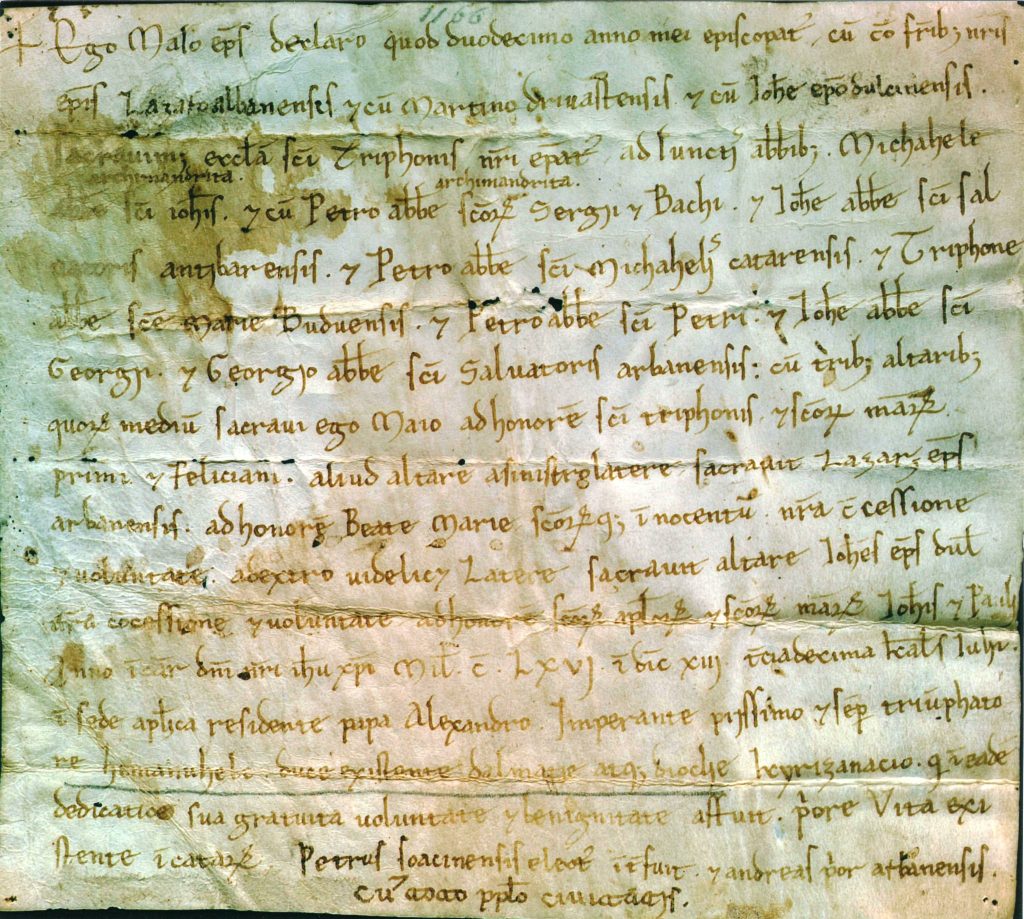 1166
+ Ego Maio ep̄s declaro quod duodecimo anno mei episcopat᷒, cū cō fr̄ibꝫ nr̄is
ep̄is Lazaro albanensis ⁊ cū Martino drivastensis ⁊ cū Ioh̄e ep̄o dulcinensis.
sacravimꝫ eccl̄a sc̄i Triphonis nr̄i ep̄at᷒, adiunctis abb̄ibꝫ. Michahele
archimandrita. archimandrita.
abb̄e sc̄i ioh̄is. ⁊ cū Petro abb̄e sc̄oꝝ Sergii ⁊ Bachi. ⁊ Ioh̄e abb̄e sc̄i sal
vatoris antibarensis. ⁊ Petro abb̄e sc̄i Michahelis catarensis. ⁊ Triphone
abb̄e sc̄e Marie Buduensis. ⁊ Petro abb̄e sc̄i Petri. ⁊ Ioh̄e abb̄e sc̄i
Georgii. ⁊ Georgio abb̄e sc̄i Salvatoris arbanensis: cū trībꝫ altaribꝫ
quoꝝ mediū sacravi ego Maio ad honorē sc̄i triphonis. ⁊ sc̄oꝝ mār̄ꝝ
primi ⁊ feliciani. aliud altare a sinistro latere sacravit Lazarꝫ ep̄s
arbanensis. ad honorē Beate Marie sc̄oꝝqꝫ īnocentū. nr̄a c̄cessione
⁊ voluntate. a dextro videlicꝫ Latere sacravit altare Ioh̄es ep̄s dul̄
nr̄a cōcessione ⁊ voluntate ad honorē sc̄oꝝ apl̄oꝝ ⁊ sc̄oꝝ mār̄ꝝ Ioh̄is ⁊ Pauli
Anno īcar̄ dn̄i nr̄i ih̄u xp̄i Mil̄. c̄. Lxvi. īdic̄ xiii. īciadecima kal̄s Iulii.
ī sede apl̄ica residente papa Alexandro. Imperante piissimo ⁊ sēp triūphato
re hemanuhele. duce existente dalmatie atqꝫ dioclie kyrizanacio. q̄ ī eadē
dedicatiōe sua gratuita voluntate ⁊ benignitate affuit. p̄ore Vita exi
stente ī cataꝝ. Petrus soacinensis elect᷒ īt̄fuit ⁊ andreas p̄or arbanensis.
Cū toto pp̄lo civitatis.